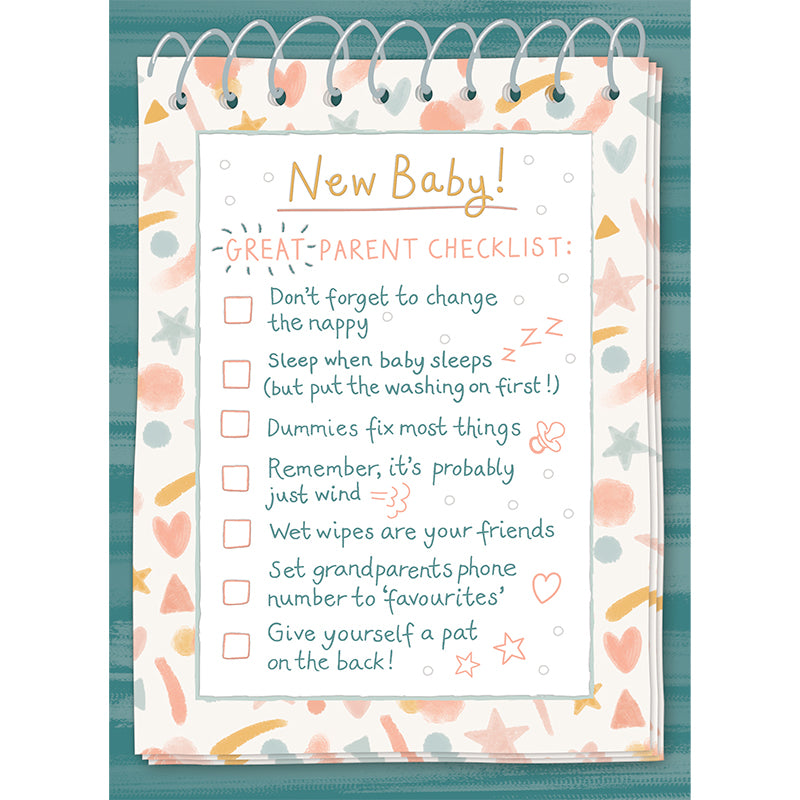 New Baby!
GREAT PARENT CHECKLIST:
Don't forget to change
the nappy
Sleep when baby sleeps
zzz
(but put the washing on first!)
Dummies fix most things
Remember, it's probably
just wind
Wet wipes are your friends
Set grandparents phone
number to 'favourites'
Give yourself a pat
on the back!